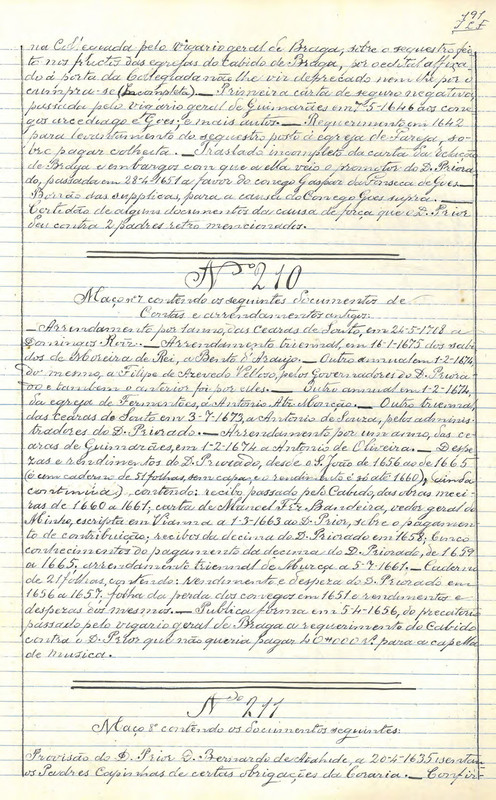 191
na Col. eivada pelo vigario geral de Braga, sobre o sequestro fei-
to nos fructos das egrejas do Cabido de Braga, por o edital affixa-
do á porta da Collegiada não lhe vir deprecado nem lhe por o
cumpra-se (Incompleta). — Primeira carta de seguro negativo,
passada pelo vigario geral de Guimarães em 5-1646 aos cone-
gos arcediago e Goes; e mais autos. — Requerimento, em 1642
para levantamento do sequestro posto á egreja de Fareja, so-
bre pagar colheita. — Traslado incompleto da carta da Relação
de Braga e embargos com que a ella veio o promotor do D. Priora-
do, passada em 28-4-1651 a favor do conego Gaspar da Fonseca de Goes. —
Borrão das supplicas, para a causa do Conego Goes supra. —
Certidão de alguns documentos da causa de força que o D. Prior
deu contra 2 padres retro mencionados.
N.º 210
Maço nº 7 contendo os seguintes documentos de
Contas e arrendamentos antigos:
— Arrendamento por 1 anno, das Cearas de Souto, em 24-5-1718 a
Domingos — Arrendamento triennal, em 16-1-1675 dos sabi-
dos de Moreira de Rei, a Bento d'Araujo. — Outro annual em 1-2-1674,
do mesmo, a Filipe de Azevedo Velloso, pelos Governadores do D. Priora-
do e tambem o anterior foi por eles. — Outro annual em 1-2-1674,
da egreja de Fermentões, a Antonio Monção. — Outro triennal,
das cearas de Souto em 3-7-1673, a Antonio de Souza, pelos adminis-
tradores do D. Priorado. — Arrendamento por um anno, das ce-
aras de Guimarães, em 1-2-1674 a Antonio de Oliveira. — Despe-
zas e rendimentos do D. Priorado, desde o S. João de 1656 ao de 1665
(é um caderno de 51 folhas, sem capa, e o rendimento é só até 1660), (ainda
continúa), contendo: recibo passado pelo Cabido, das obras mei-
ras de 1660 a 1661; carta de Manoel Fêz Bandeira, vedor geral do
Minho, escripta em Vianna a 1-3-1663 ao D. Prior, sobre o pagamen-
to de contribuição; recibos da decima do D. Priorado em 1658; Cinco
conhecimentos do pagamento da decima do D. Priorado, de 1659
a 1665; arrendamento triennal de Murça a 5-7-1661. — Caderno
de 21 folhas, contendo: rendimento e despeza do D. Priorado em
1656 a 1657. folha da perda dos conegos em 1651 e rendimentos e
despezas dos mesmos. — Publica forma em 5-4-1656, do precatorio
passado pelo vigario geral de Braga a requerimento do Cabido
contra o D. Prior que não queria pagar 40$000 rs. para a capella
de musica.
N.do 211
Maço 8º contendo os documentos seguintes:
Provisão do D. Prior D. Bernardo de Atahide, a 20-4-1635 isentan-
os Padres Capinhas de certas obrigações da Coraria. — Confir-